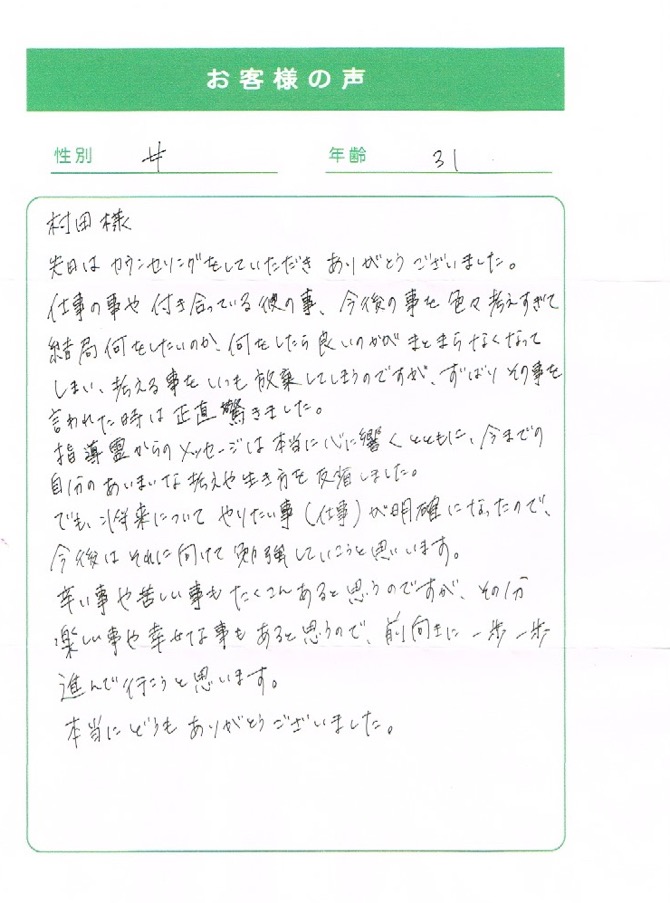 お客様の声
性別 女 年齢 31
村田様
先日は カウンセリングをしていただき ありがとうございました。
仕事の事や 付き合っている彼の事、今後の事を 色々考えすぎて
結局 何をしたいのか、何をしたら良いのかが まとまらなくなって
しまい、考える事を いつも 放棄してしまうのですが、ずばり その事を
言われた時は 正直 驚きました。
指導霊からのメッセージは 本当に心に響くとともに、今までの
自分のあいまいな考えや生き方を 反省しました。
でも、将来について やりたい事(仕事)が明確になったので、
今後は それに向けて 勉強していこうと思います。
辛い事や苦しい事も たくさんあると思うのですが、その分
楽しい事や 幸せな事も あると思うので、前向きに 一歩 一歩
進んで行こうと思います。
本当にどうも ありがとうございました。